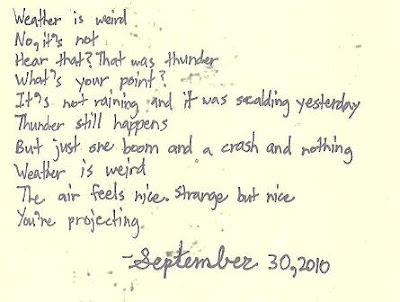 Weather is weird
No, it's not
Hear that? That was thunder
What's your point?
It's not raining and it was scalding yesterday
Thunder still happens
But just one boom and a crash and nothing
Weather is weird
The air feels nice. Strange but nice
You're projecting.
-September 30, 2010